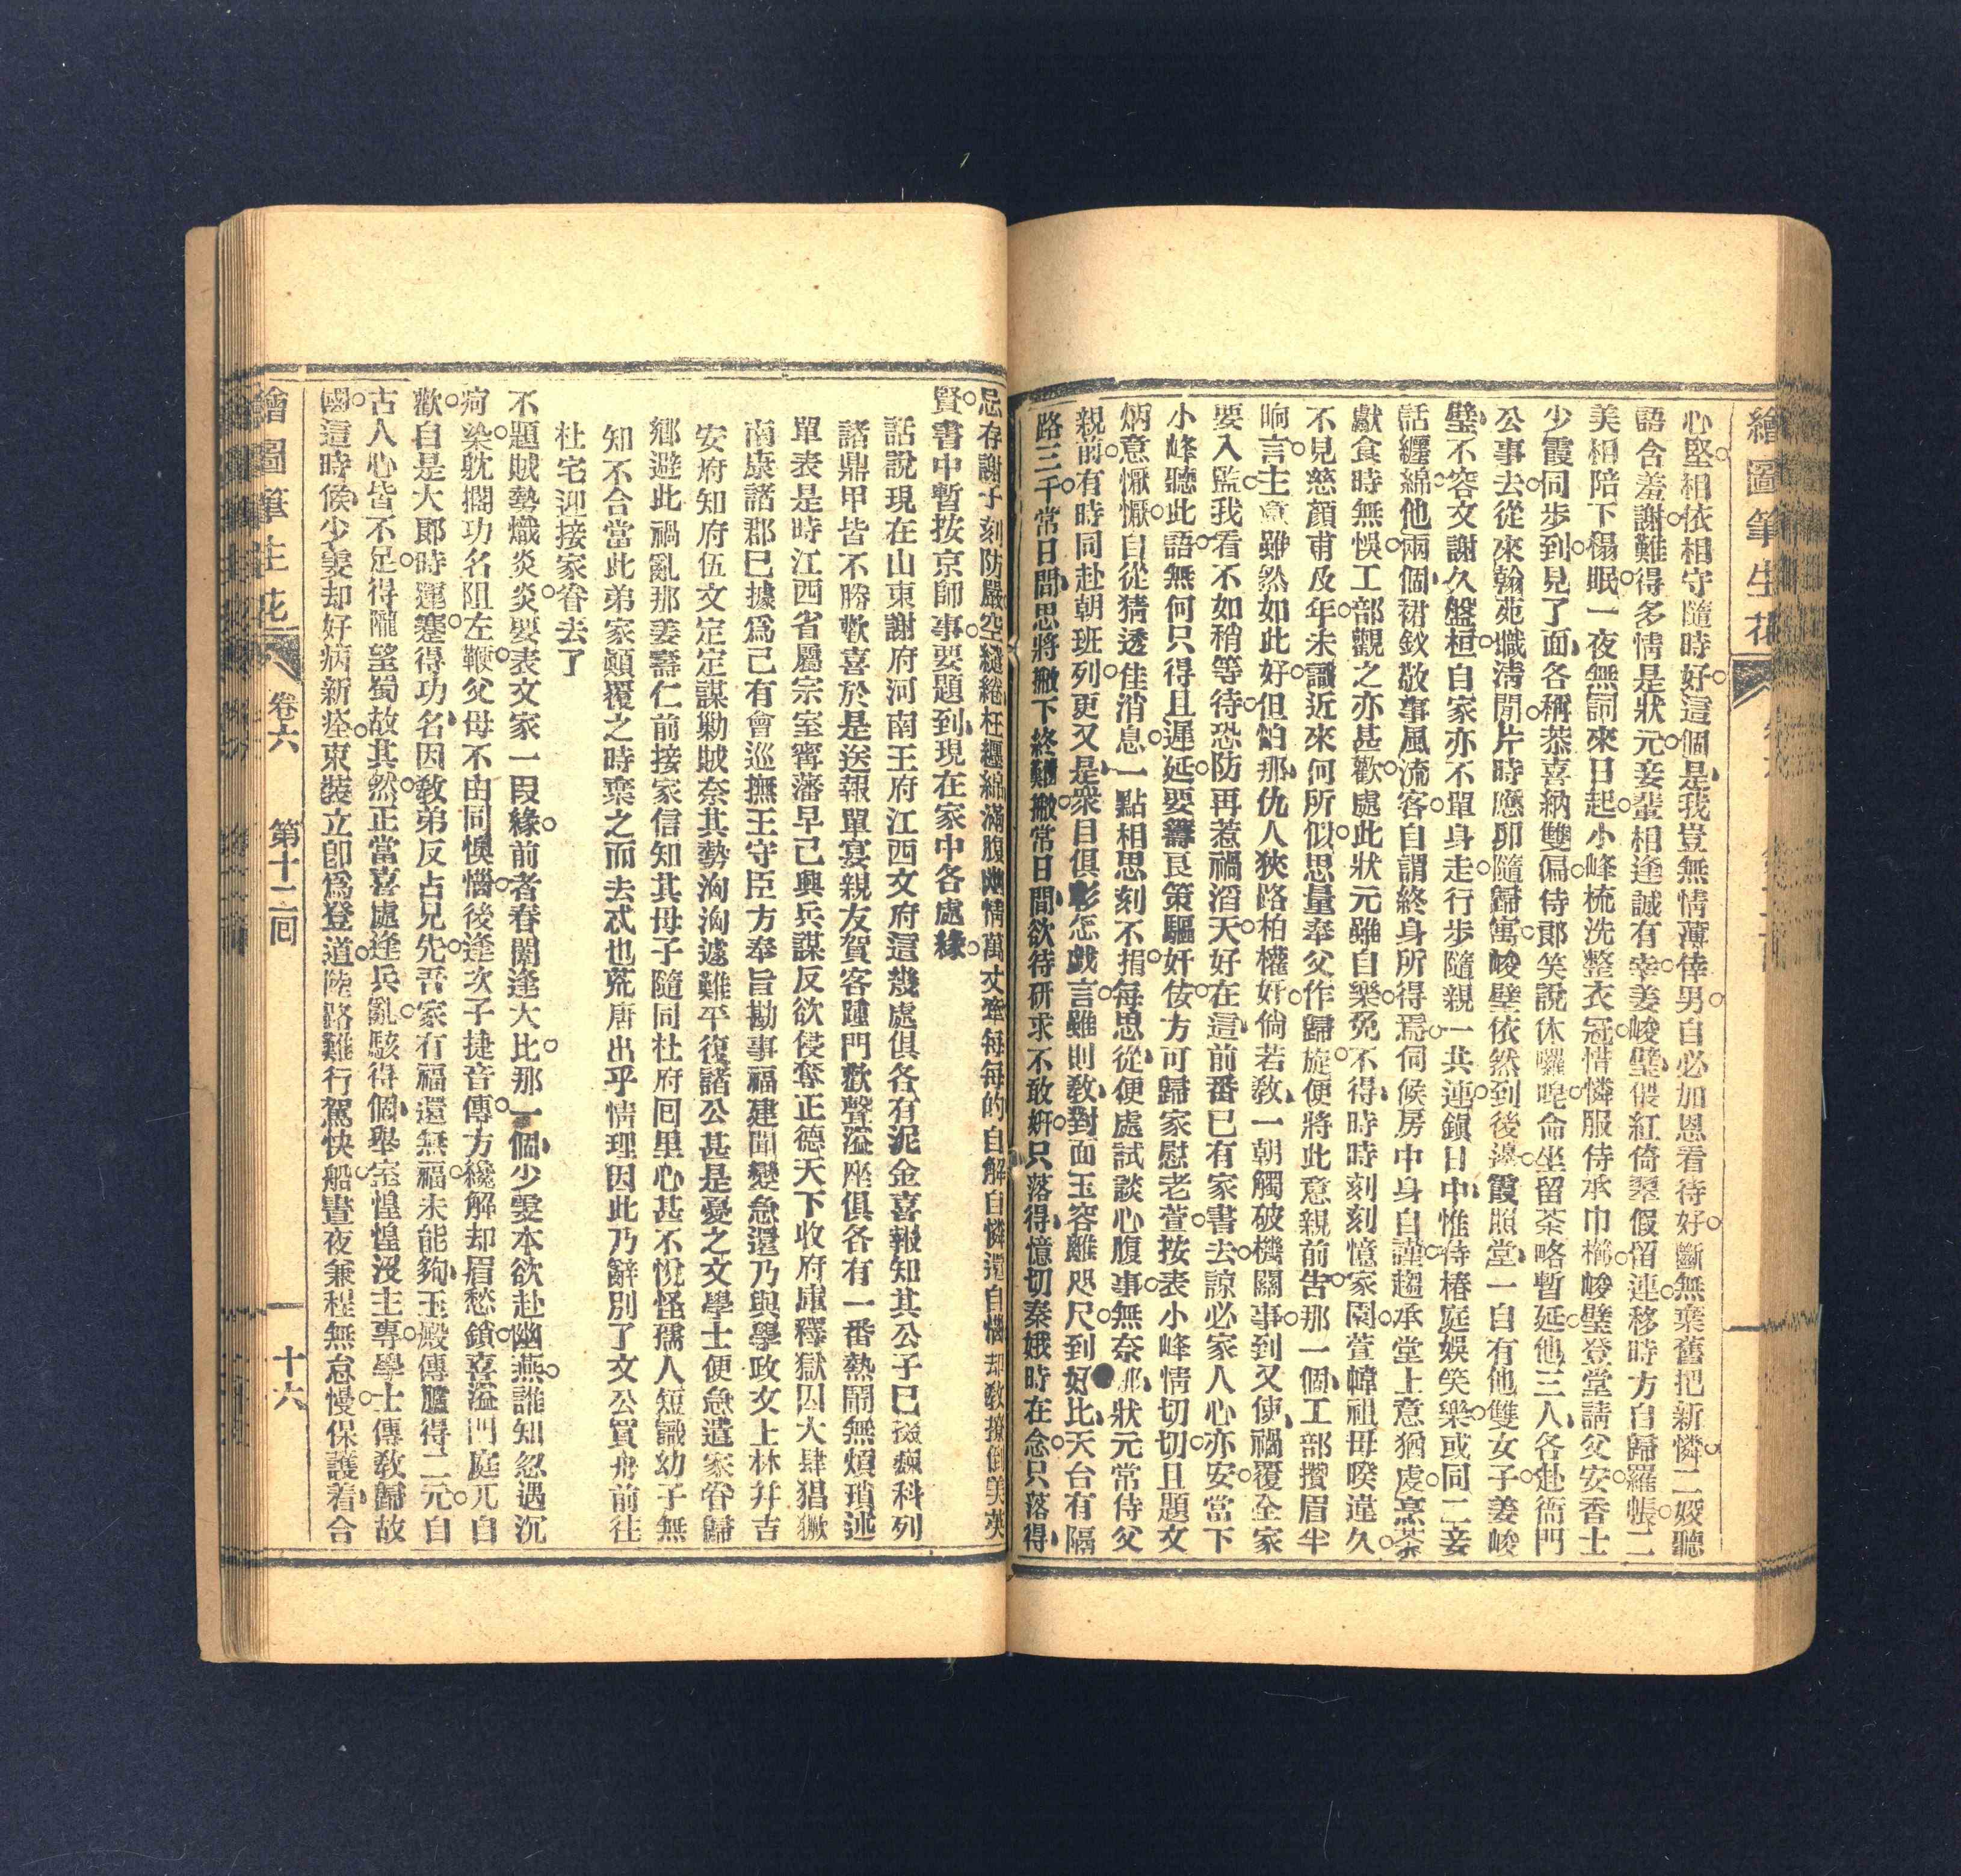 繪圖筆生花
心堅相依相守隨時好這個是我豈無情薄倖男自必加恩看待好斷無棄舊把新憐二姣聽
語含羞謝難得多情是狀元妾輩相逢誠有幸姜峻璧偎紅倚翠假留連移時方自歸羅帳二
美相陪下榻眠一夜無詞來日起小峰梳洗整衣冠惜憐服侍承巾櫛峻璧登堂請父安香士
少霞同步到見了面各稱恭喜納雙偏侍郎笑說休囉唣命坐留茶略暫延他三人各赴衙門
公事去從來翰苑職淸閒片時應卯隨歸寓峻璧依然到後邊霞照堂一自有他雙女子姜峻
璧不容文謝久盤桓自家亦不單身走行步隨親一共連鎭日中惟侍椿庭娛笑樂或同二妾
話纒綿他兩個裙釵敬事風流客自謂終身所得焉伺候房中身自謹趨承堂上意猶虔烹茶
獻食時無悞工部觀之亦甚歡處此狀元雖自樂免不得時時刻刻憶家園萱幃祖母暌違久
不見慈顏甫及年未識近來何所似思量奉父作歸旋便將此意親前告那一個工部攢眉半
晌言主意雖然如此好但怕那仇人狹路柏權奸倘若敎一朝觸破機關事到又使禍覆全家
要入監我看不如稍等待恐防再惹禍滔天好在這前番已有家書去諒必家人心亦安當下
小峰聽此語無何只得且遲延要籌良策驅奸佞方可歸家慰老萱按表小峰情切切且題文
炳意懨懨自從猜透佳消息一點相思刻不捐每思從便處試談心腹事無奈那狀元常侍父
親前有時同赴朝班列更又是衆目俱彰怎戲言雖則敎對面玉容離咫尺到好比天台有隔
路三千常日間思將撇下終難撇常日間欲待研求不敢姸只落得憶切秦娥時在念只落得
忌存謝子刻防嚴空縫綣枉纒綿滿腹幽情萬丈牽每每的自解自憐還自惱却敎擦倒美英
賢書中暫按京師事要題到現在家中各處緣
話說現在山東謝府河南王府江西文府這幾處俱各有泥金喜報知其公子已掇巍科列
諸鼎甲皆不勝歡喜於是送報單宴親友賀客踵門歡聲溢座俱各有一番熱鬧無煩瑣述
單表是時江西省屬宗室甯藩早已興兵謀反欲侵奪正德天下收府庫釋獄囚大肆猖獗
南康諸郡已據爲己有會巡撫王守臣方奉旨勘事福建聞變急還乃與學政文上林幷吉
安府知府伍文定定謀勦賊奈其勢洶洶遽難平復諸公甚是憂之文學士便急遣家眷歸
鄕避此禍亂那姜壽仁前接家信知其母子隨同杜府囘里心甚不悅怪孺人短識幼子無
知不合當此弟家顚覆之時棄之而去忒也荒唐出乎情理因此乃辭別了文公買舟前往
杜宅迎接家眷去了
不題賊勢熾炎炎要表文家一叚緣前者春闈逢大比那一個少雯本欲赴幽燕誰知忽遇沉
疴染躭擱功名阻左鞭父母不由同懊惱後逢次子捷音傳方纔解却眉愁鎖喜溢門庭兀自
歡自是大郎時運蹇得功名因敎弟反占兄先吾家有福還無福未能夠玉殿傳臚得二元自
古人心皆不足得隴望蜀故其然正當喜處逢兵亂駭得個舉室惶惶沒主專學士傳敎歸故
國這時候少雯却好病新痊束裝立卽爲登道陸路難行駕快船晝夜兼程無怠慢保護着合
繪圖筆生花 卷六 第十二囘 十六